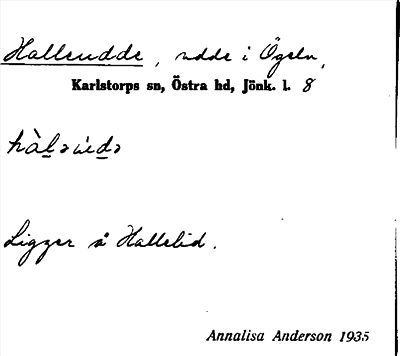 Halleudde, udde i Ögeln,
Karlstorps sn, Östra hd, Jönk. l. 8
Ligger å Hallelid.
Annalisa Anderson 1935